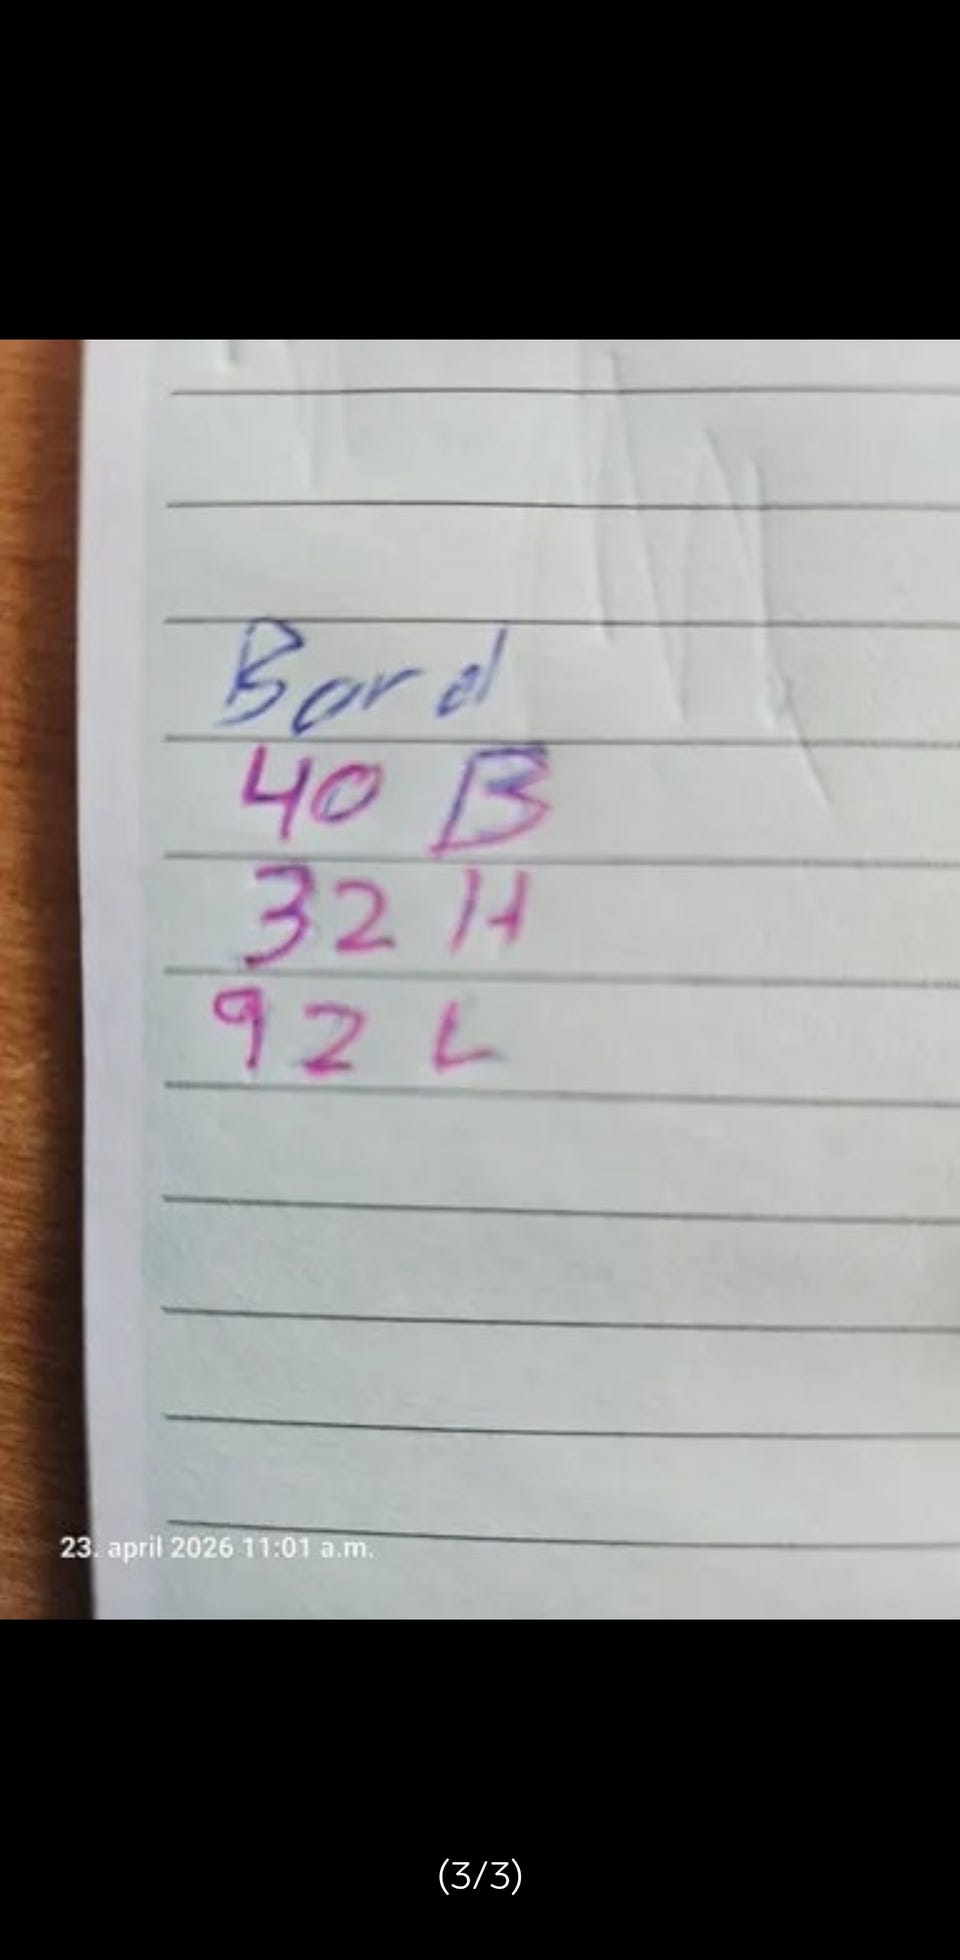 Bord
40 B
32 H
92 L
23. april 2026 11:01 a.m.
(3/3)